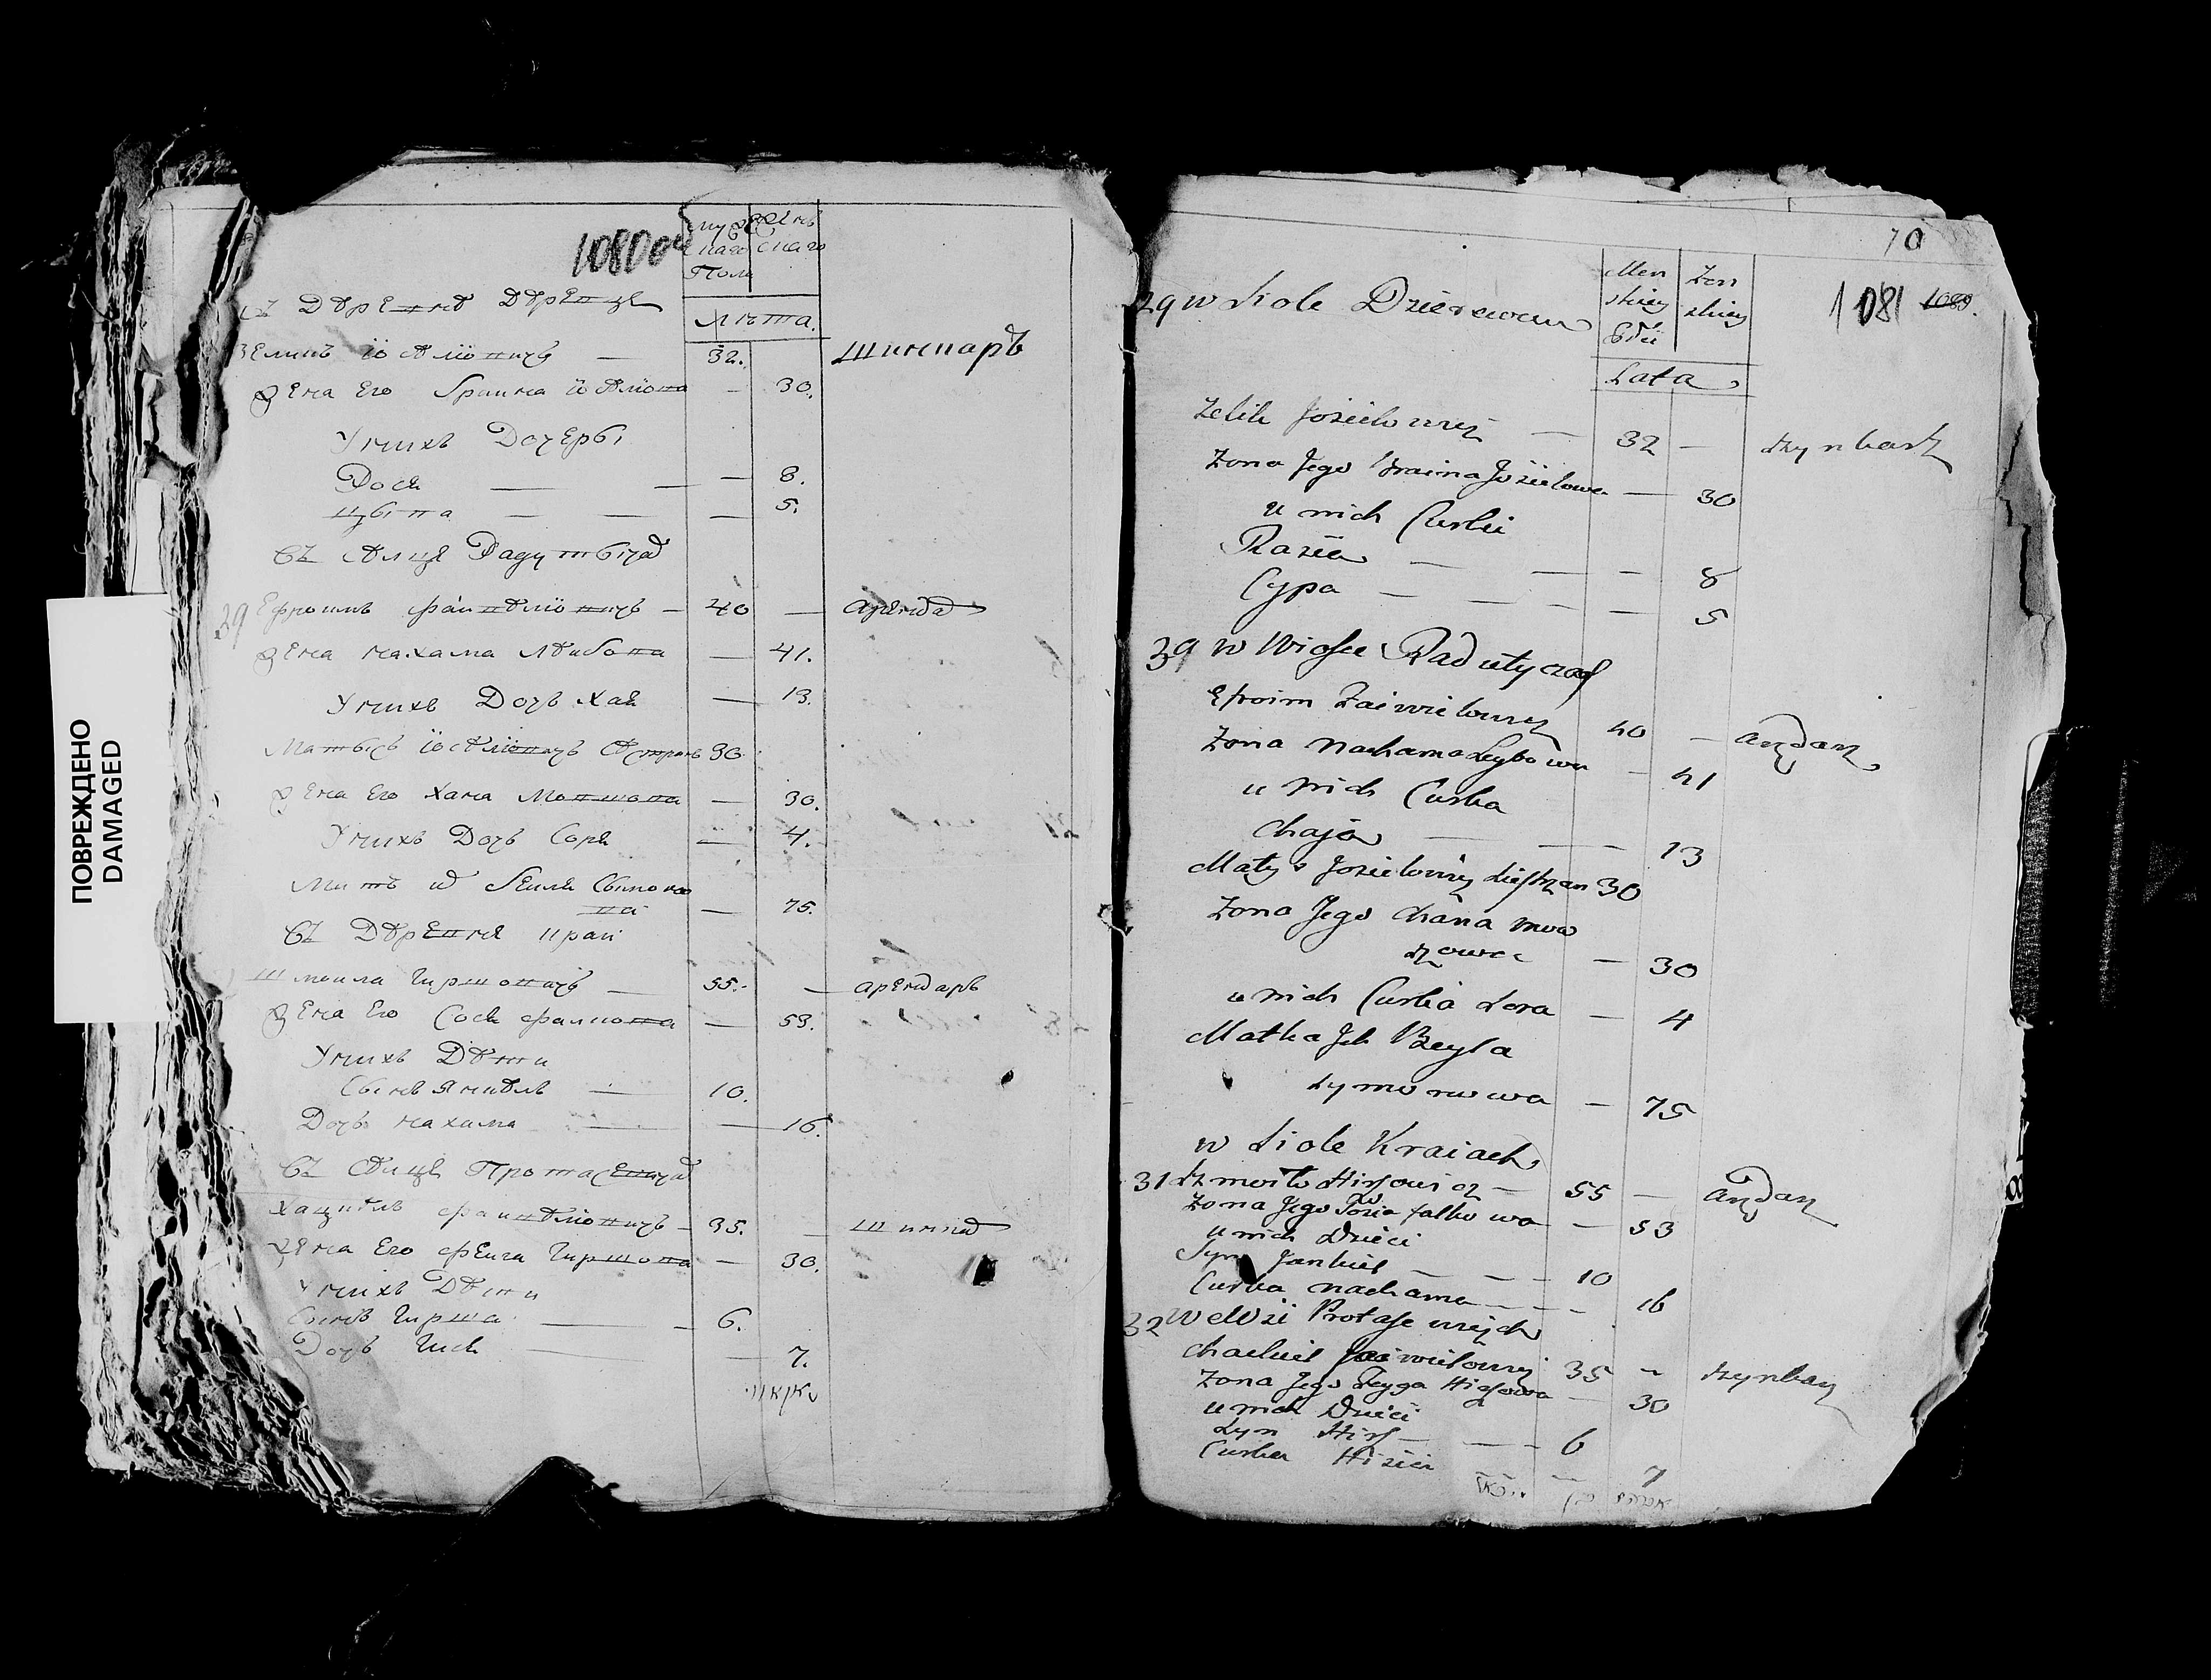 ПОВРЕЖДЕНО
DAMAGED
1080 об
муже
скаго
Полу
женъ
скаго
Лѣта.
Въ Деревнѣ
Зеликъ Іоселіовичъ — 32. Шинкаръ
Жена Его Браина Іоселіова — 30.
У нихъ Дочеры
Рося — — — 8.
Цыпа — — — 5.
Въ Селце Радутычах
39 Ефроимъ Фаивелiовичъ — 40 —
Жена Нахама Леибова — 41.
У нихъ Дочъ Хая — 13.
Матысъ Іоселіовичъ 30
Жена Его Хана Мовшова — 30.
У нихъ Дочъ Сора — 4.
Мать их Беиля
— 75.
Въ Деревне Краи
Шмоила Гиршовичъ — 55. — арендаръ
Жена Его Сося Фалкова — 53.
У нихъ Дети
Сынъ Янкель — 10.
Дочъ Нахама — — 16.
Въ Селце Протасевичах
Хацкель Фаивелiовичъ — 35. —
Жена Его Феига Гиршова — 30.
У нихъ Дети
Сынъ Гирша — — 6.
Дочъ Гися — — 7.
70
1081 1080.
Men
skiey
Płci
Zen
skiey
Lata
29 w Siole Dzierewem
Zelik Jozielowicz — 32 — szynkarz
Zona Jego Braina Jozielowa — 30
u nich Curki
Rasia — — — 8
Cypa — — — — 5
39 w Wiosce Radutyczach
Efroim Faiwielowicz 40 — arędarz
Zona Nachama Leybowa — 41
u nich Curka
Chaja — — — 13
Matys Jozielowicz 30
Zona Jego Chana Mow
szowa — 30
u nich Curka Sora — 4
Matka Jch Beyla
Szymonowa — 75
w Siole Kraiach
31 Szmoiło Hirszowicz — 55 — arędarz
Zona Jego Sosia Falkowa — 53
u nich Dzieci
Syn Jankiel — — — 10
Curka Nachama — — — 16
32 w Protasewiczach
Chackiel Faiwielowicz 35 — szynkarz
Zona Jego Feyga Hirszowa — 30
u nich Dzieci
Syn Hirsz — — — 6
Curka Hisia — 7